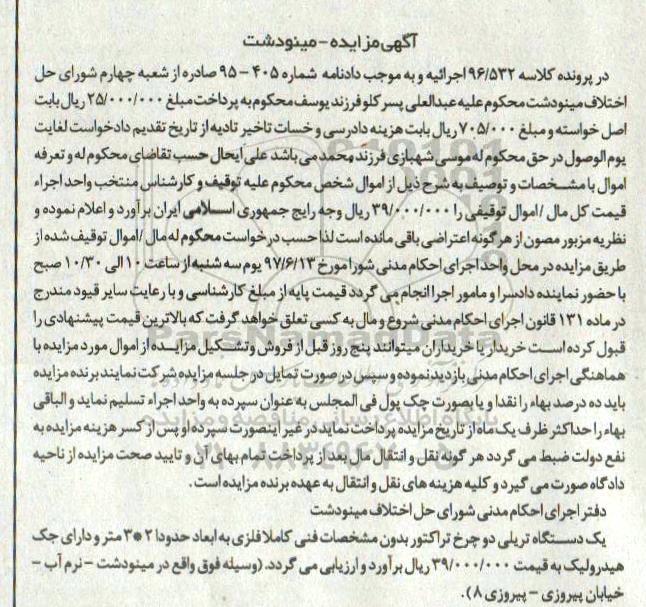 آگهی مزایده - مینودشت
در پرونده کلاسه ۹۶/۵۳۲ اجرائیه و به موجب دادنامه شماره ۴۰۵ - ۹۵ صادره از شعبه چهارم شورای حل
اختلاف مینودشت محکوم علیه عبدالعلی پسرکلو فرزند یوسف محکوم به پرداخت مبلغ ۲۵/۰۰۰/۰۰۰ ریال بابت
اصل خواسته و مبلغ ۷۰۵/۰۰۰ ریال بابت هزینه دادرسی و خسات تاخیر تادیه از تاریخ تقدیم دادخواست لغایت
یوم الوصول در حق محکوم له موسی شهبازی فرزند محمد می باشد علی ایحال حسب تقاضای محکوم له و تعرفه
اموال با مشخصات و توصیف به شرح ذیل از اموال شخص محکوم علیه توقیف و کارشناس منتخب واحد اجراء
قیمت کل مال / اموال توقیفی را ۳۹/۰۰۰/۰۰۰ ریال وجه رایج جمهوری اسلامی ایران برآورد و اعلام نموده و
نظریه مزبور مصون از هر گونه اعتراضی باقی مانده است لذا حسب درخواست محکوم له مال / اموال توقیف شده از
طریق مزایده در محل واحد اجرای احکام مدنی شورا مورخ ۹۷/۶/۱۳ یوم سه شنبه از ساعت ۱۰ الی ۱۰/۳۰ صبح
با حضور نماینده دادسرا و مامور اجرا انجام می گردد قیمت پایه از مبلغ کارشناسی و با رعایت سایر قیود مندرج
در ماده ۱۳۱ قانون اجرای احکام مدنی شروع و مال به کسی تعلق خواهد گرفت که بالاترین قیمت پیشنهادی را
قبول کرده است خریدار یا خریداران میتوانند پنج روز قبل از فروش وتشکیل مزایده از اموال مورد مزایده با
هماهنگی اجرای احکام مدنی بازدید نموده و سپس در صورت تمایل در جلسه مزایده شرکت نمایند برنده مزایده
باید ده درصد بهاء را نقدا و یا بصورت چک پول فی المجلس به عنوان سپرده به واحد اجراء تسلیم نماید و الباقی
بهاء را حداکثر ظرف یک ماه از تاریخ مزایده پرداخت نماید در غیر اینصورت سپرده او پس از کسر هزینه مزایده به
نفع دولت ضبط می گردد هر گونه نقل و انتقال مال بعد از پرداخت تمام بهای آن و تایید صحت مزایده از ناحیه
دادگاه صورت می گیرد و کلیه هزینه های نقل و انتقال به عهده برنده مزایده است.
دفتر اجرای احکام مدنی شورای حل اختلاف مینودشت
یک دستگاه تریلی دو چرخ تراکتور بدون مشخصات فنی کاملا فلزی به ابعاد حدودا ۲*۳ متر و دارای جک
هیدرولیک به قیمت ۳۹/۰۰۰/۰۰۰ ریال برآورد و ارزیابی می گردد. (وسیله فوق واقع در مینودشت - نرم آب -
خیابان پیروزی - پیروزی ۸).